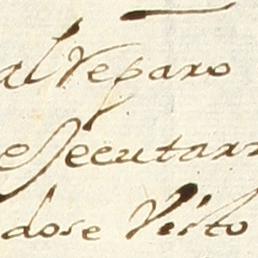 al Reparo
executarr
dose Visto